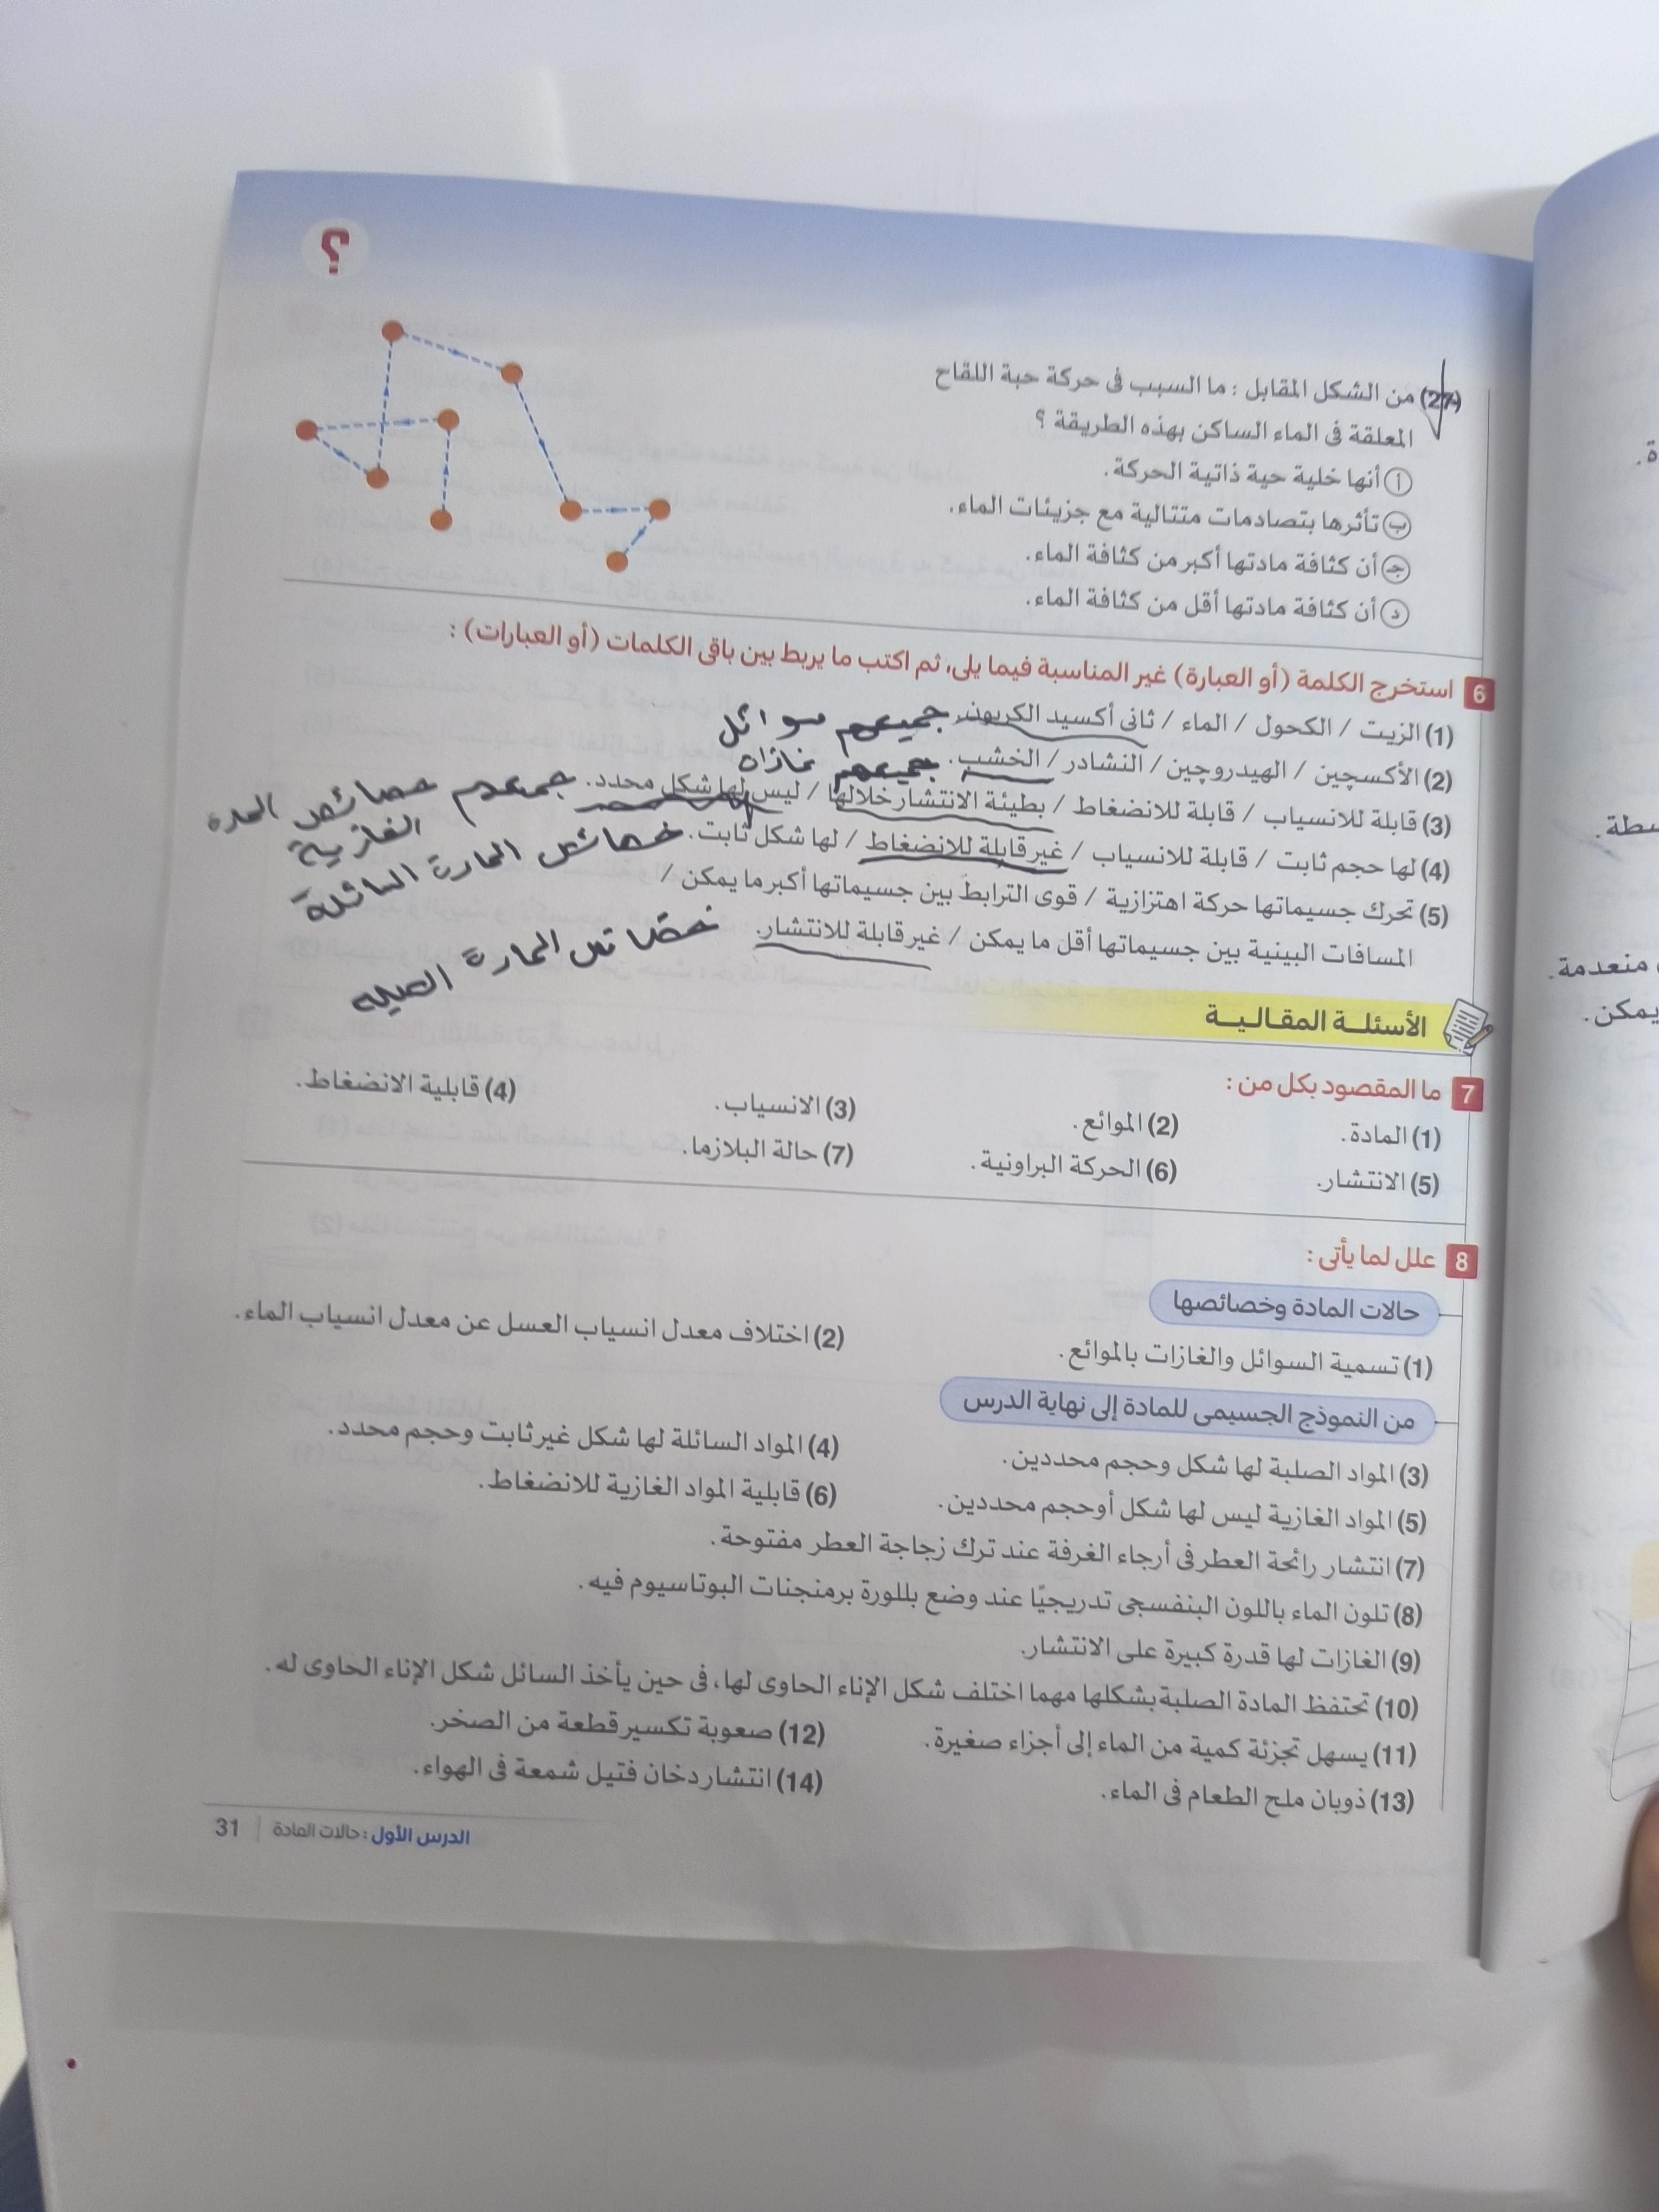 ؟
(27) من الشكل المقابل : ما السبب فى حركة حبة اللقاح
المعلقة فى الماء الساكن بهذه الطريقة ؟
أ أنها خلية حية ذاتية الحركة.
ب تأثرها بتصادمات متتالية مع جزيئات الماء.
ج أن كثافة مادتها أكبر من كثافة الماء.
د أن كثافة مادتها أقل من كثافة الماء.
6 استخرج الكلمة (أو العبارة) غير المناسبة فيما يلى، ثم اكتب ما يربط بين باقى الكلمات (أو العبارات) :
(1) الزيت / الكحول / الماء / ثانى أكسيد الكربون. جميعهم سوائل
(2) الأكسچين / الهيدروچين / النشادر / الخشب. جميعهم غازات
(3) قابلة للانسياب / قابلة للانضغاط / بطيئة الانتشار خلالها / ليس لها شكل محدد. جميعهم خصائص المادة
الغازية
(4) لها حجم ثابت / قابلة للانسياب / غير قابلة للانضغاط / لها شكل ثابت. خصائص المادة السائلة
(5) تحرك جسيماتها حركة اهتزازية / قوى الترابط بين جسيماتها أكبر ما يمكن /
المسافات البينية بين جسيماتها أقل ما يمكن / غير قابلة للانتشار. خصائص المادة الصلبه
الأسئلة المقالية
7 ما المقصود بكل من :
(1) المادة. (2) الموائع. (3) الانسياب. (4) قابلية الانضغاط.
(5) الانتشار. (6) الحركة البراونية. (7) حالة البلازما.
8 علل لما يأتى :
حالات المادة وخصائصها
(1) تسمية السوائل والغازات بالموائع. (2) اختلاف معدل انسياب العسل عن معدل انسياب الماء.
من النموذج الجسيمى للمادة إلى نهاية الدرس
(3) المواد الصلبة لها شكل وحجم محددين. (4) المواد السائلة لها شكل غير ثابت وحجم محدد.
(5) المواد الغازية ليس لها شكل أو حجم محددين. (6) قابلية المواد الغازية للانضغاط.
(7) انتشار رائحة العطر فى أرجاء الغرفة عند ترك زجاجة العطر مفتوحة.
(8) تلون الماء باللون البنفسجى تدريجيًا عند وضع بللورة برمنجنات البوتاسيوم فيه.
(9) الغازات لها قدرة كبيرة على الانتشار.
(10) تحتفظ المادة الصلبة بشكلها مهما اختلف شكل الإناء الحاوى لها، فى حين يأخذ السائل شكل الإناء الحاوى له.
(11) يسهل تجزئة كمية من الماء إلى أجزاء صغيرة. (12) صعوبة تكسير قطعة من الصخر.
(13) ذوبان ملح الطعام فى الماء. (14) انتشار دخان فتيل شمعة فى الهواء.
الدرس الأول : حالات المادة | 31
منعدمة.
يمكن.